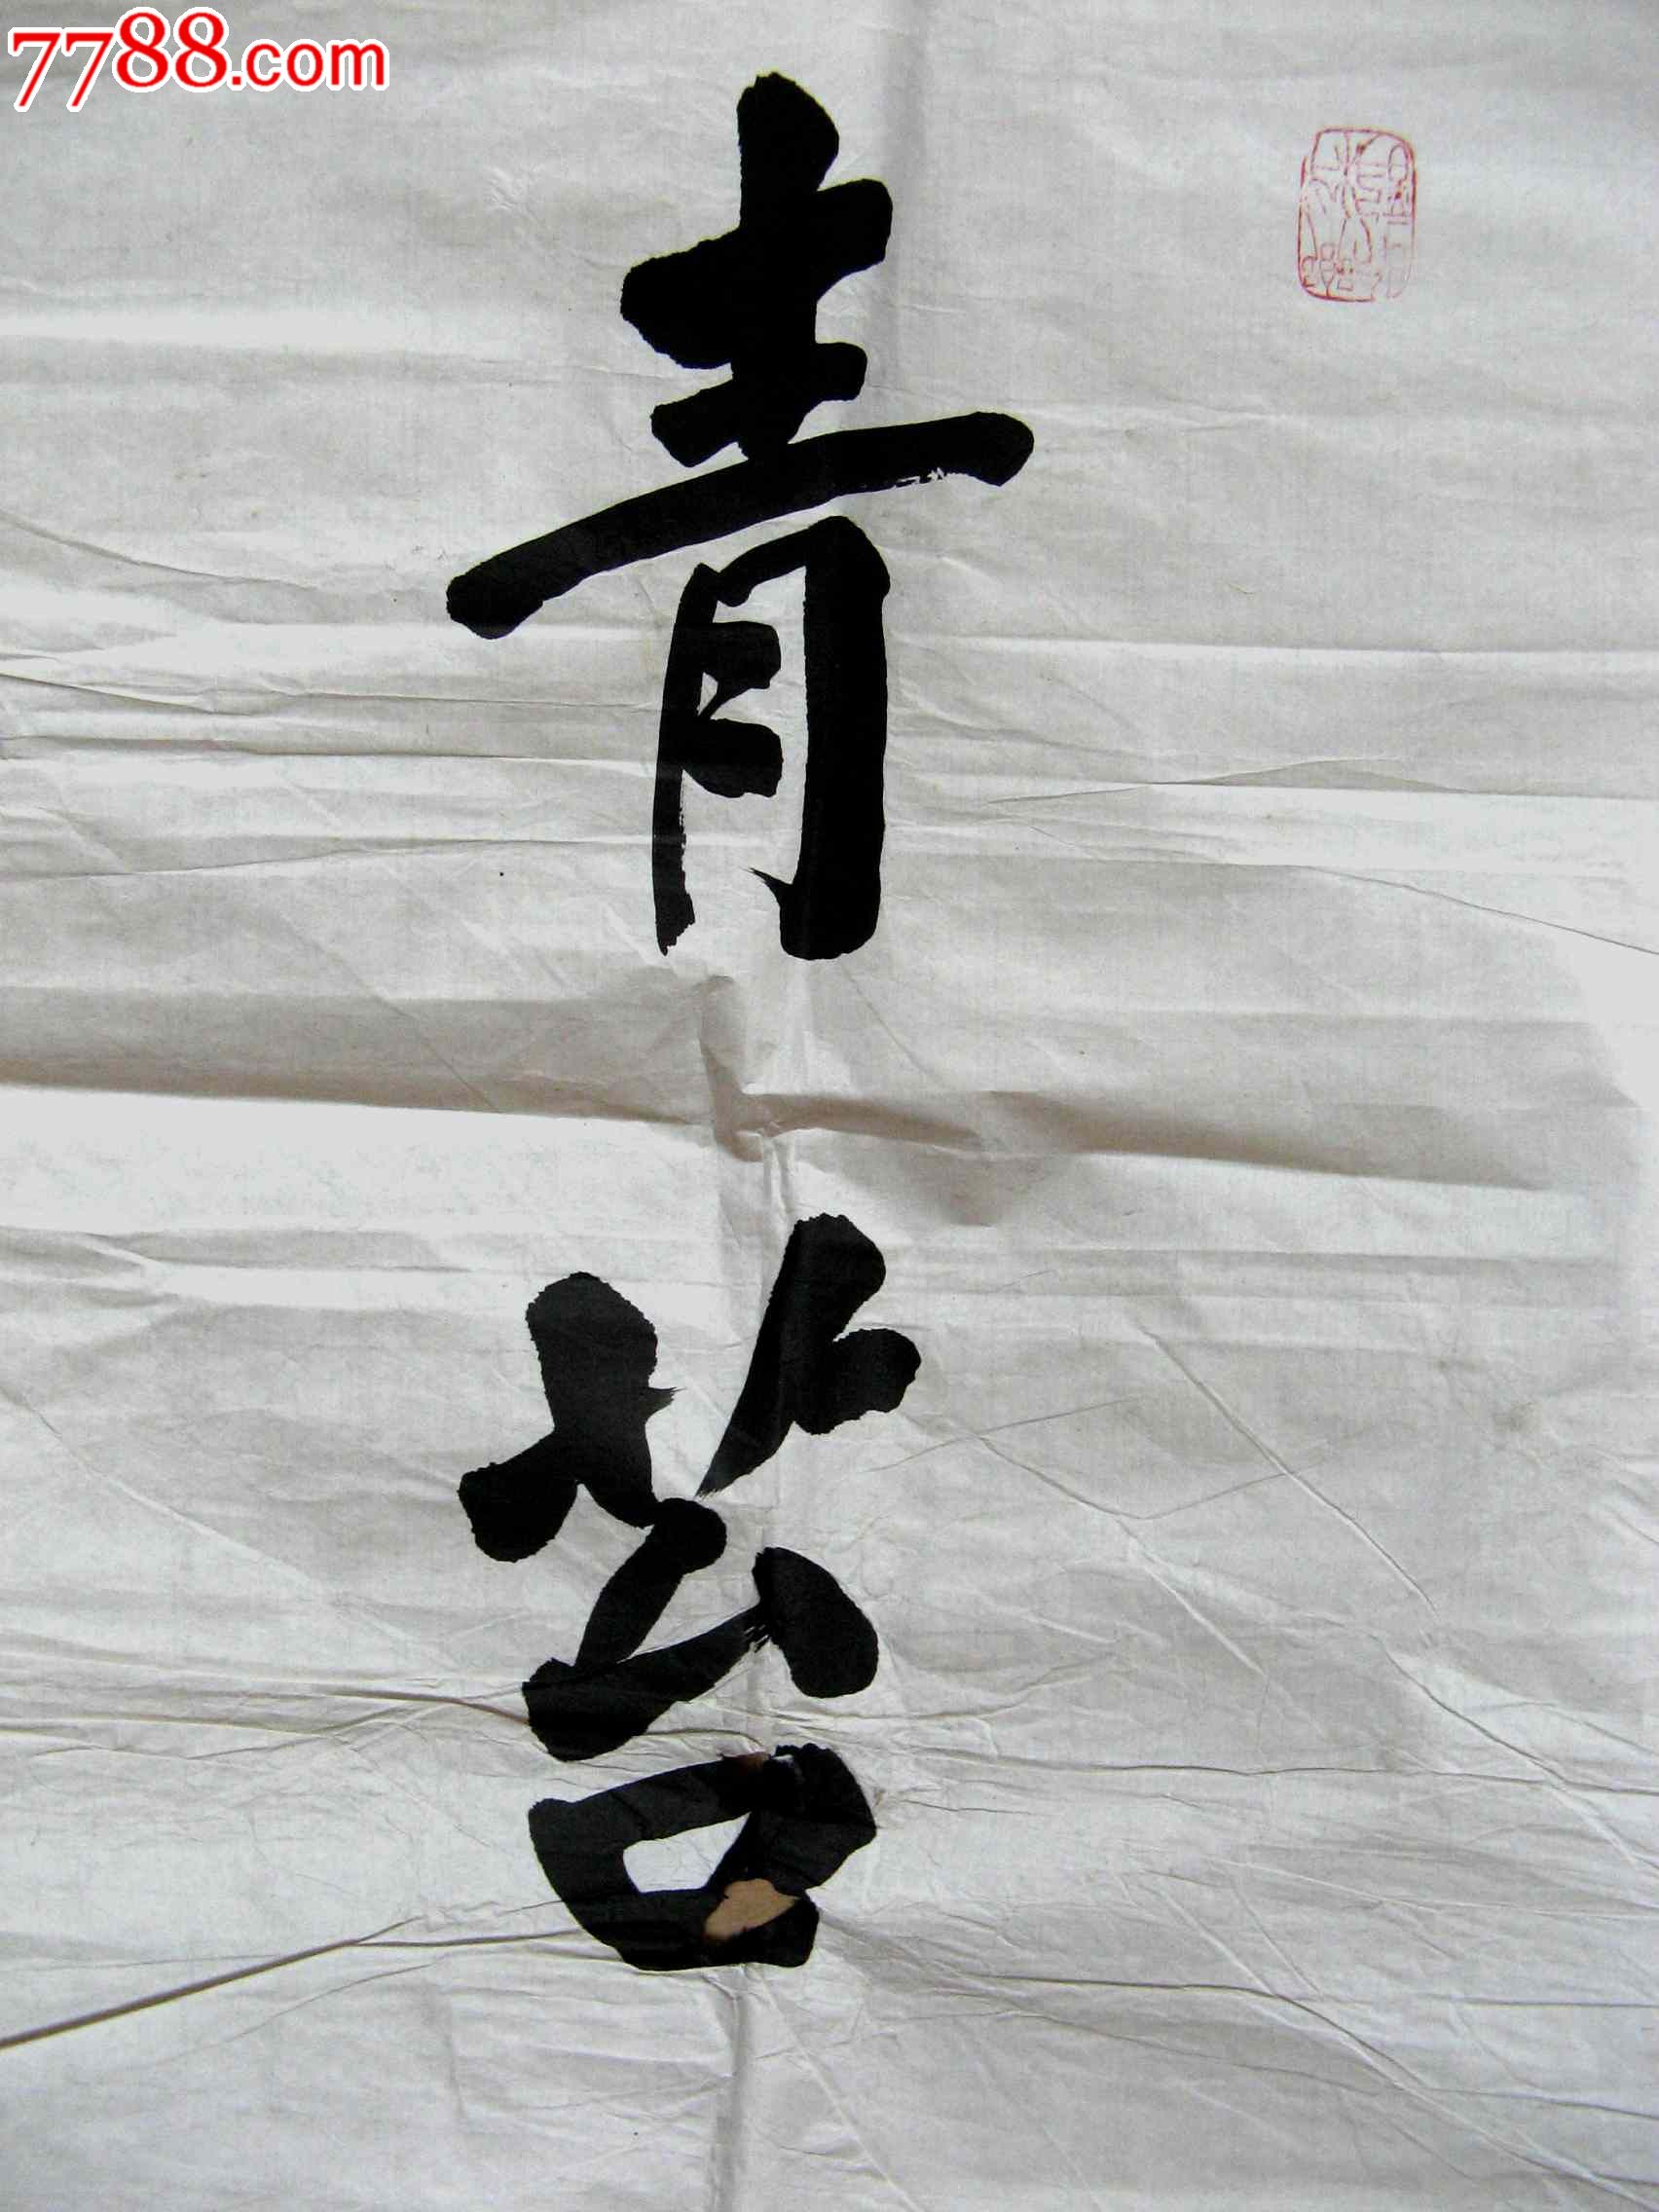 7788.com
青
苔